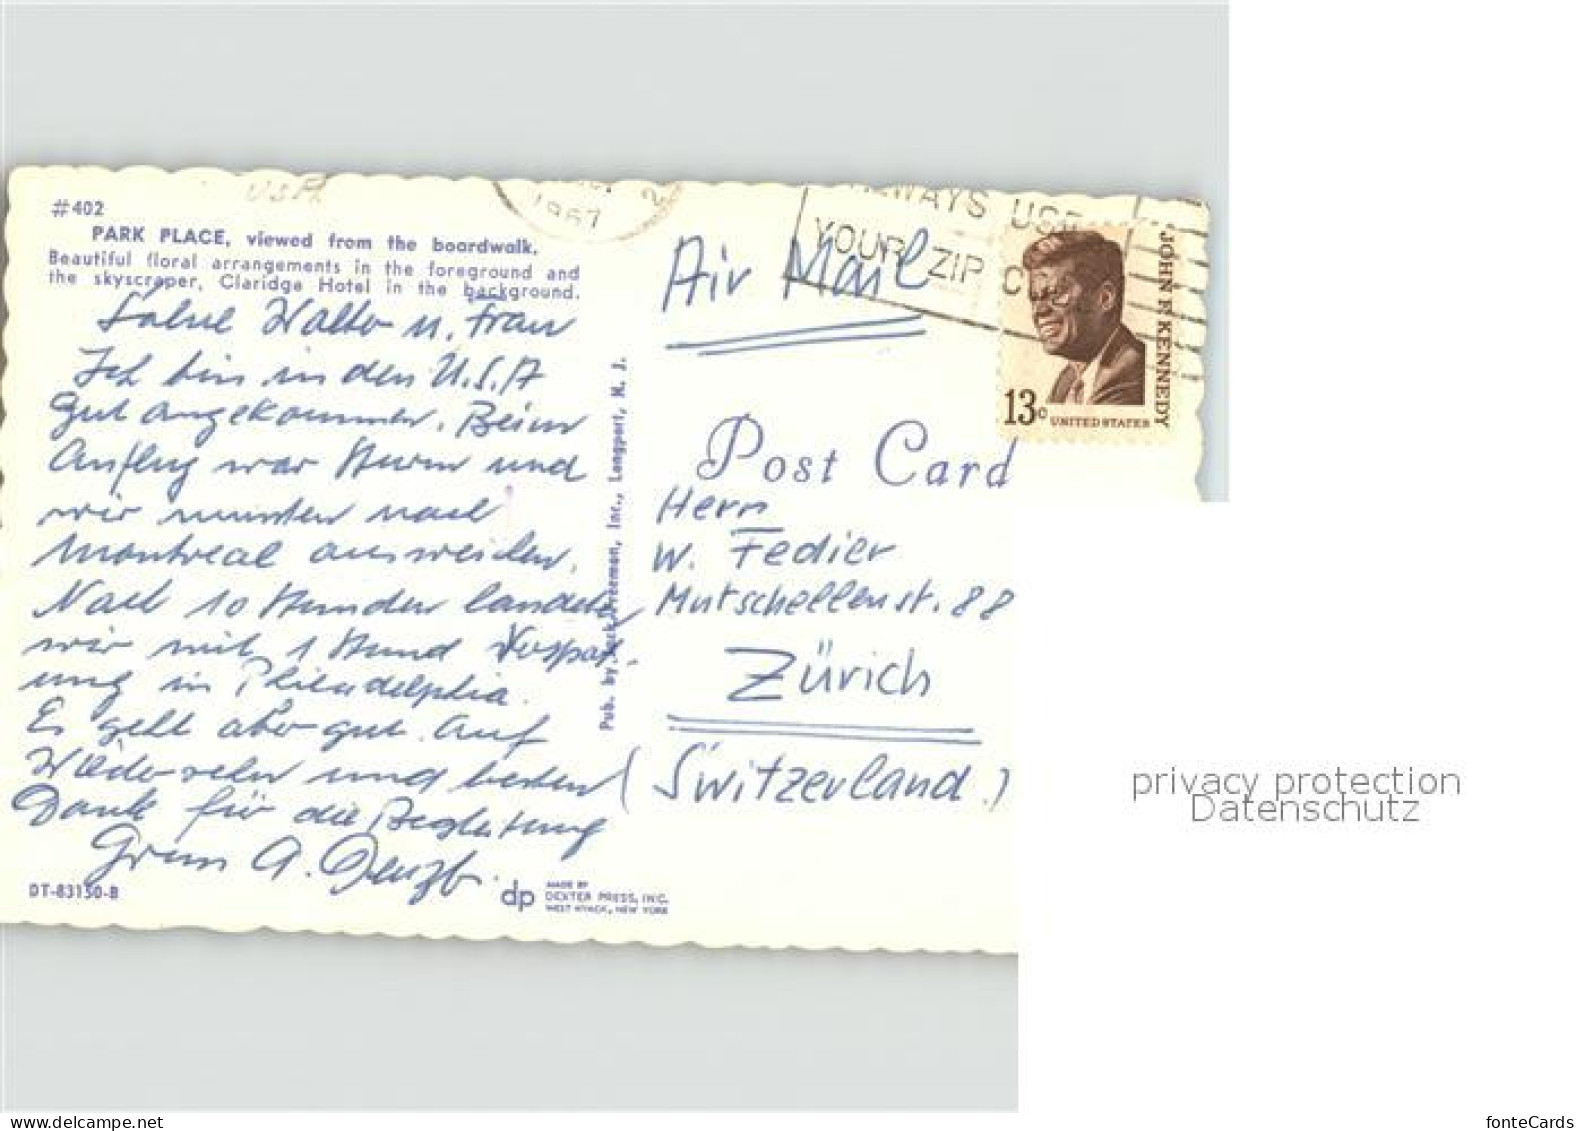 USA
1967
2
ALWAYS USE
YOUR ZIP CODE
#402
PARK PLACE, viewed from the boardwalk.
Beautiful floral arrangements in the foreground and
the skyscraper, Claridge Hotel in the background.
Air Mail
JOHN F. KENNEDY
13c
UNITED STATES
Walter u. Frau
Ich bin in den U.S.A
Gut angekommen. Beim
Anflug war Sturm und
wir mussten nach
Montreal ausweichen.
Nach 10 Stunden landete
wir mit 1 Stund Verspät-
ung in Philadelphia.
Es geht aber gut. Auf
Wiedersehn und besten
Dank für die Begleitung
Gruss A.
Pub. by Jack Freeman, Inc., Longport, N. J.
Post Card
Herrn
W. Fedier
Mutschellenst. 88
Zürich
(Switzerland.)
DT-83150-B
dp
MADE BY
DEXTER PRESS, INC.
WEST NYACK, NEW YORK
privacy protection
Datenschutz
www.delcampe.net
fonteCards